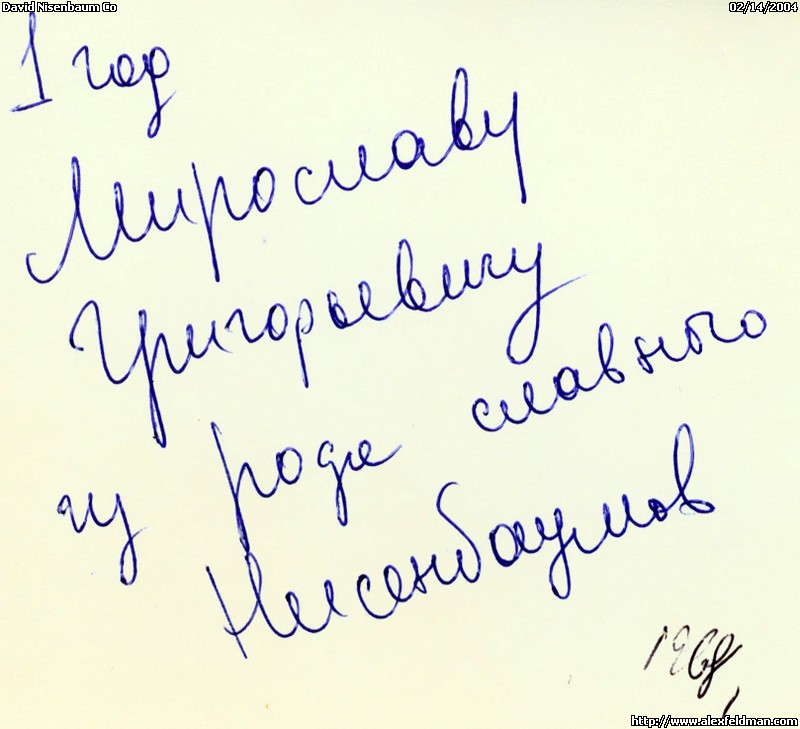 David Nisenbaum Co
02/14/2004
1 год
Мирославу
Григорьевичу
из рода славного
Нисенбаумов
1968,
http://www.alexfeldman.com